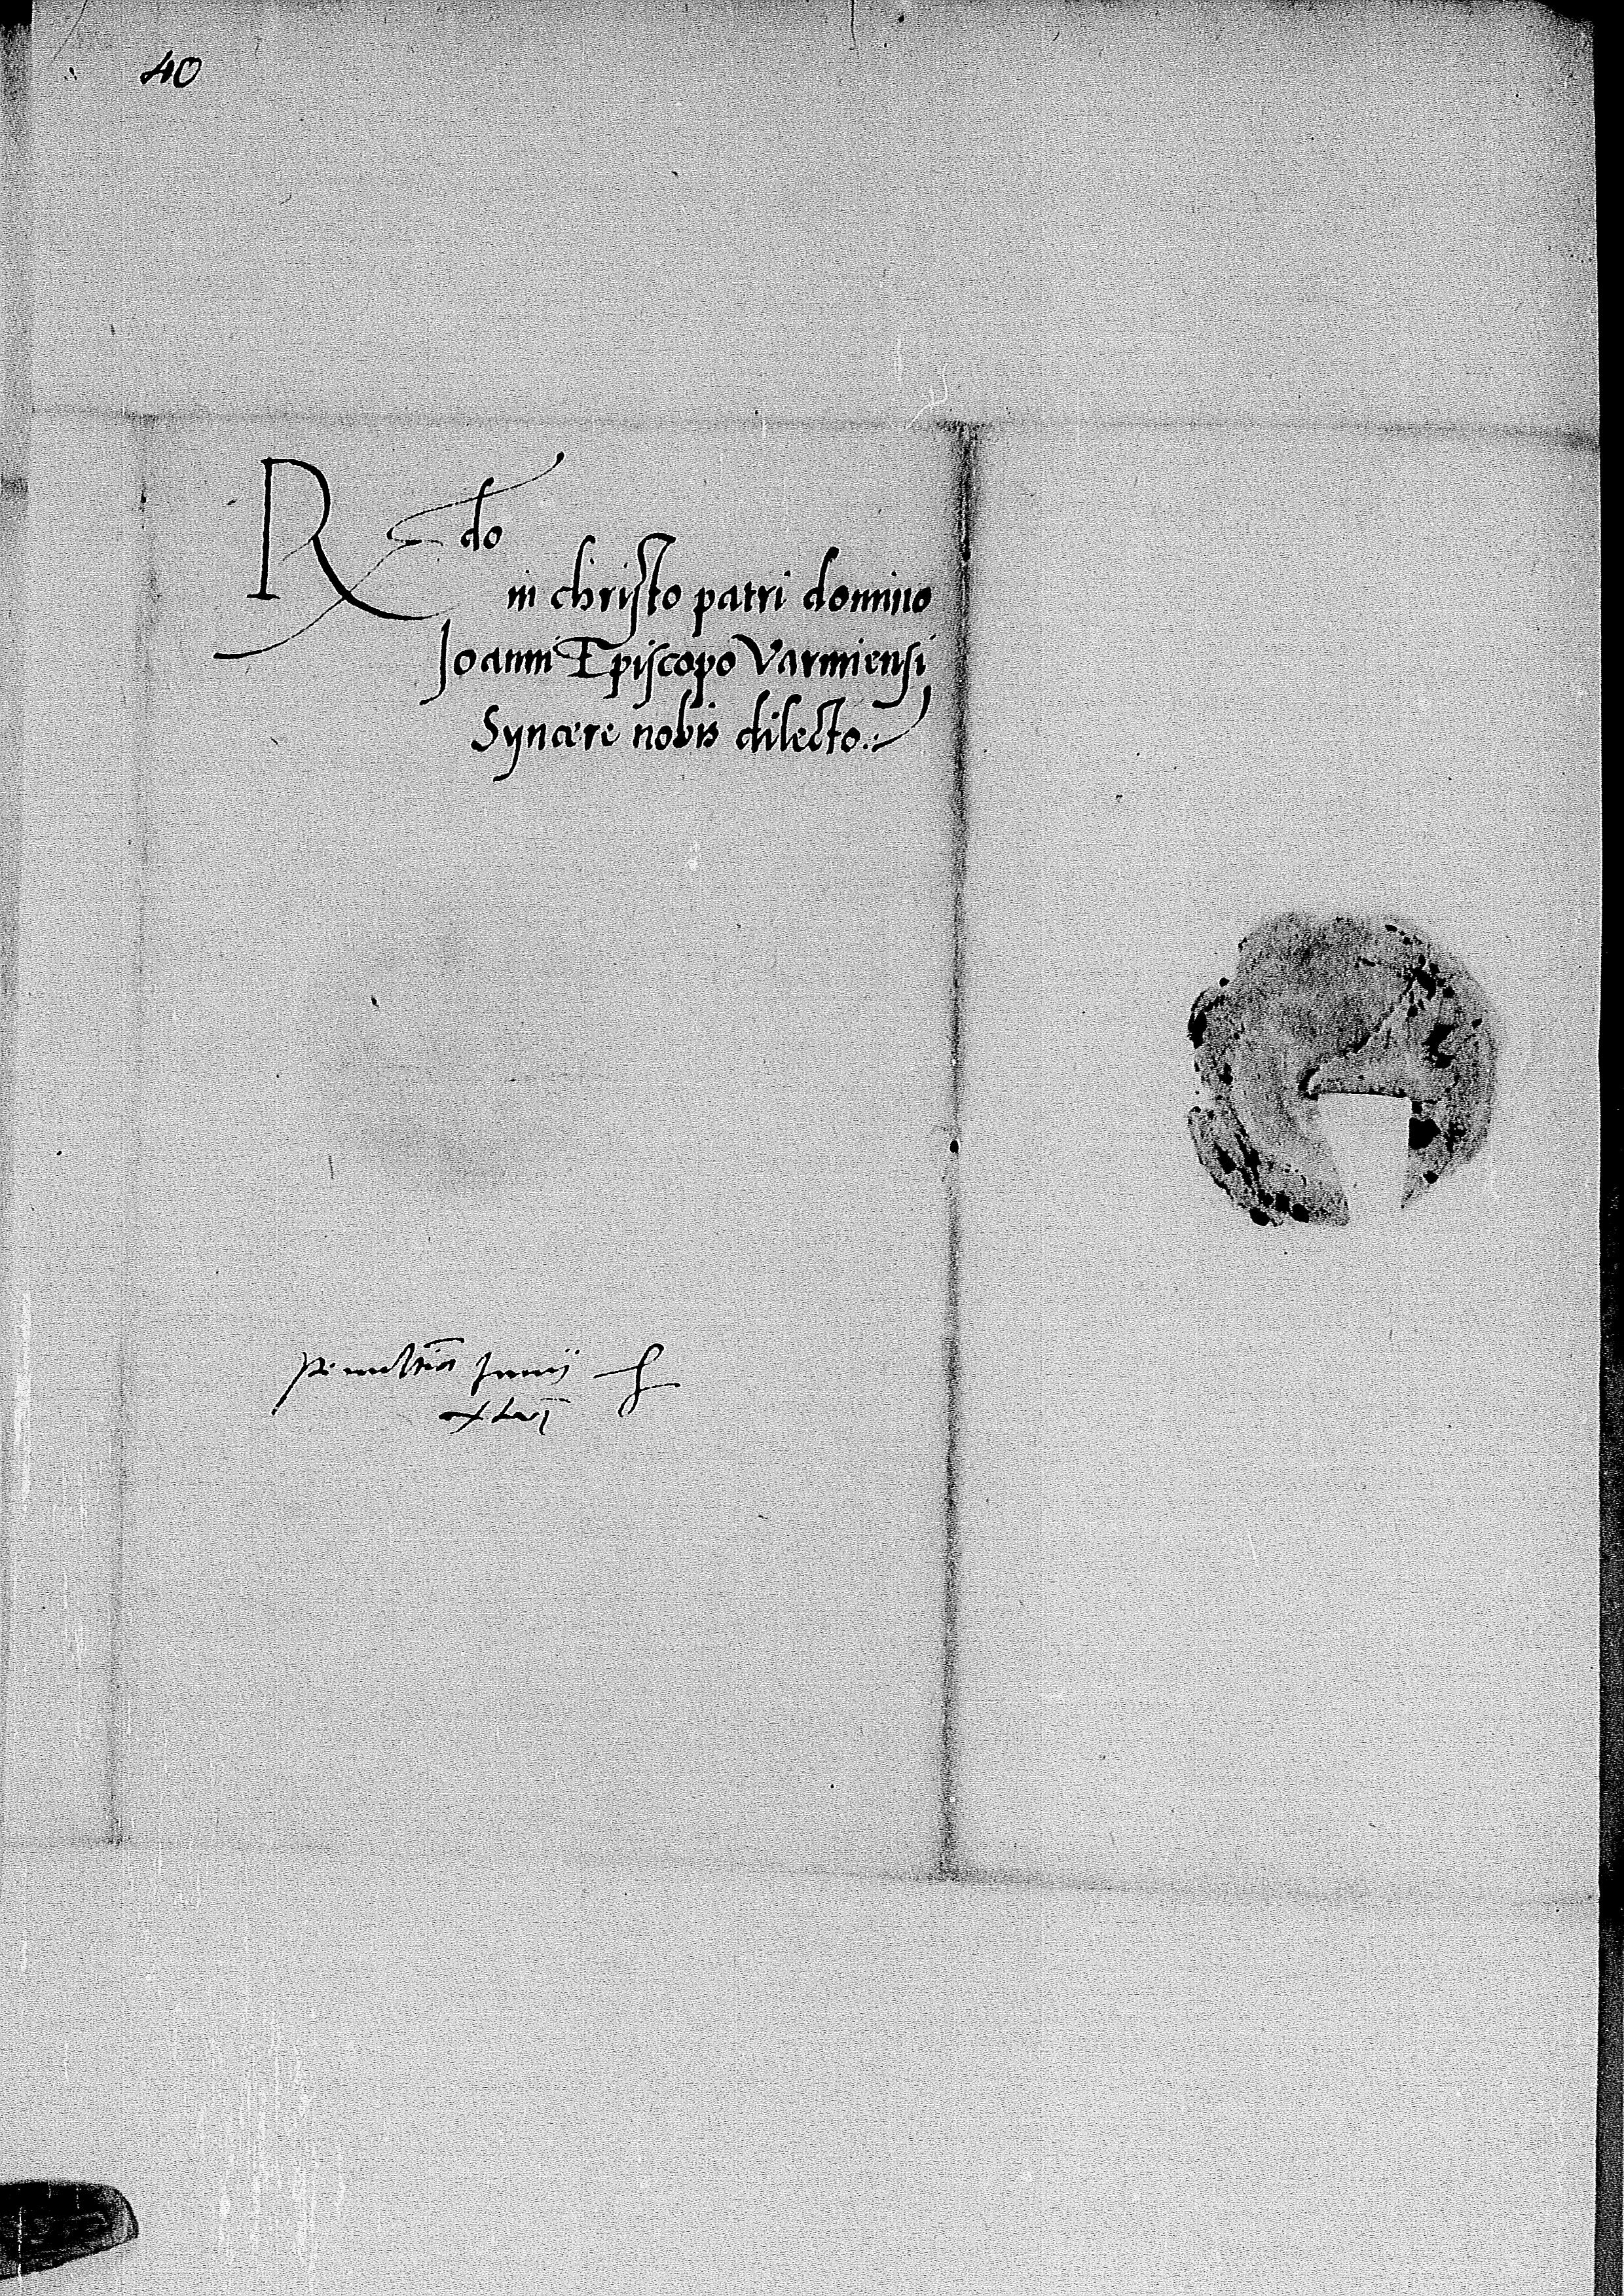 40
Rdo
in christo patri domino
Joanni Episcopo Varmiensi
Syncere nobis dilecto
Junij